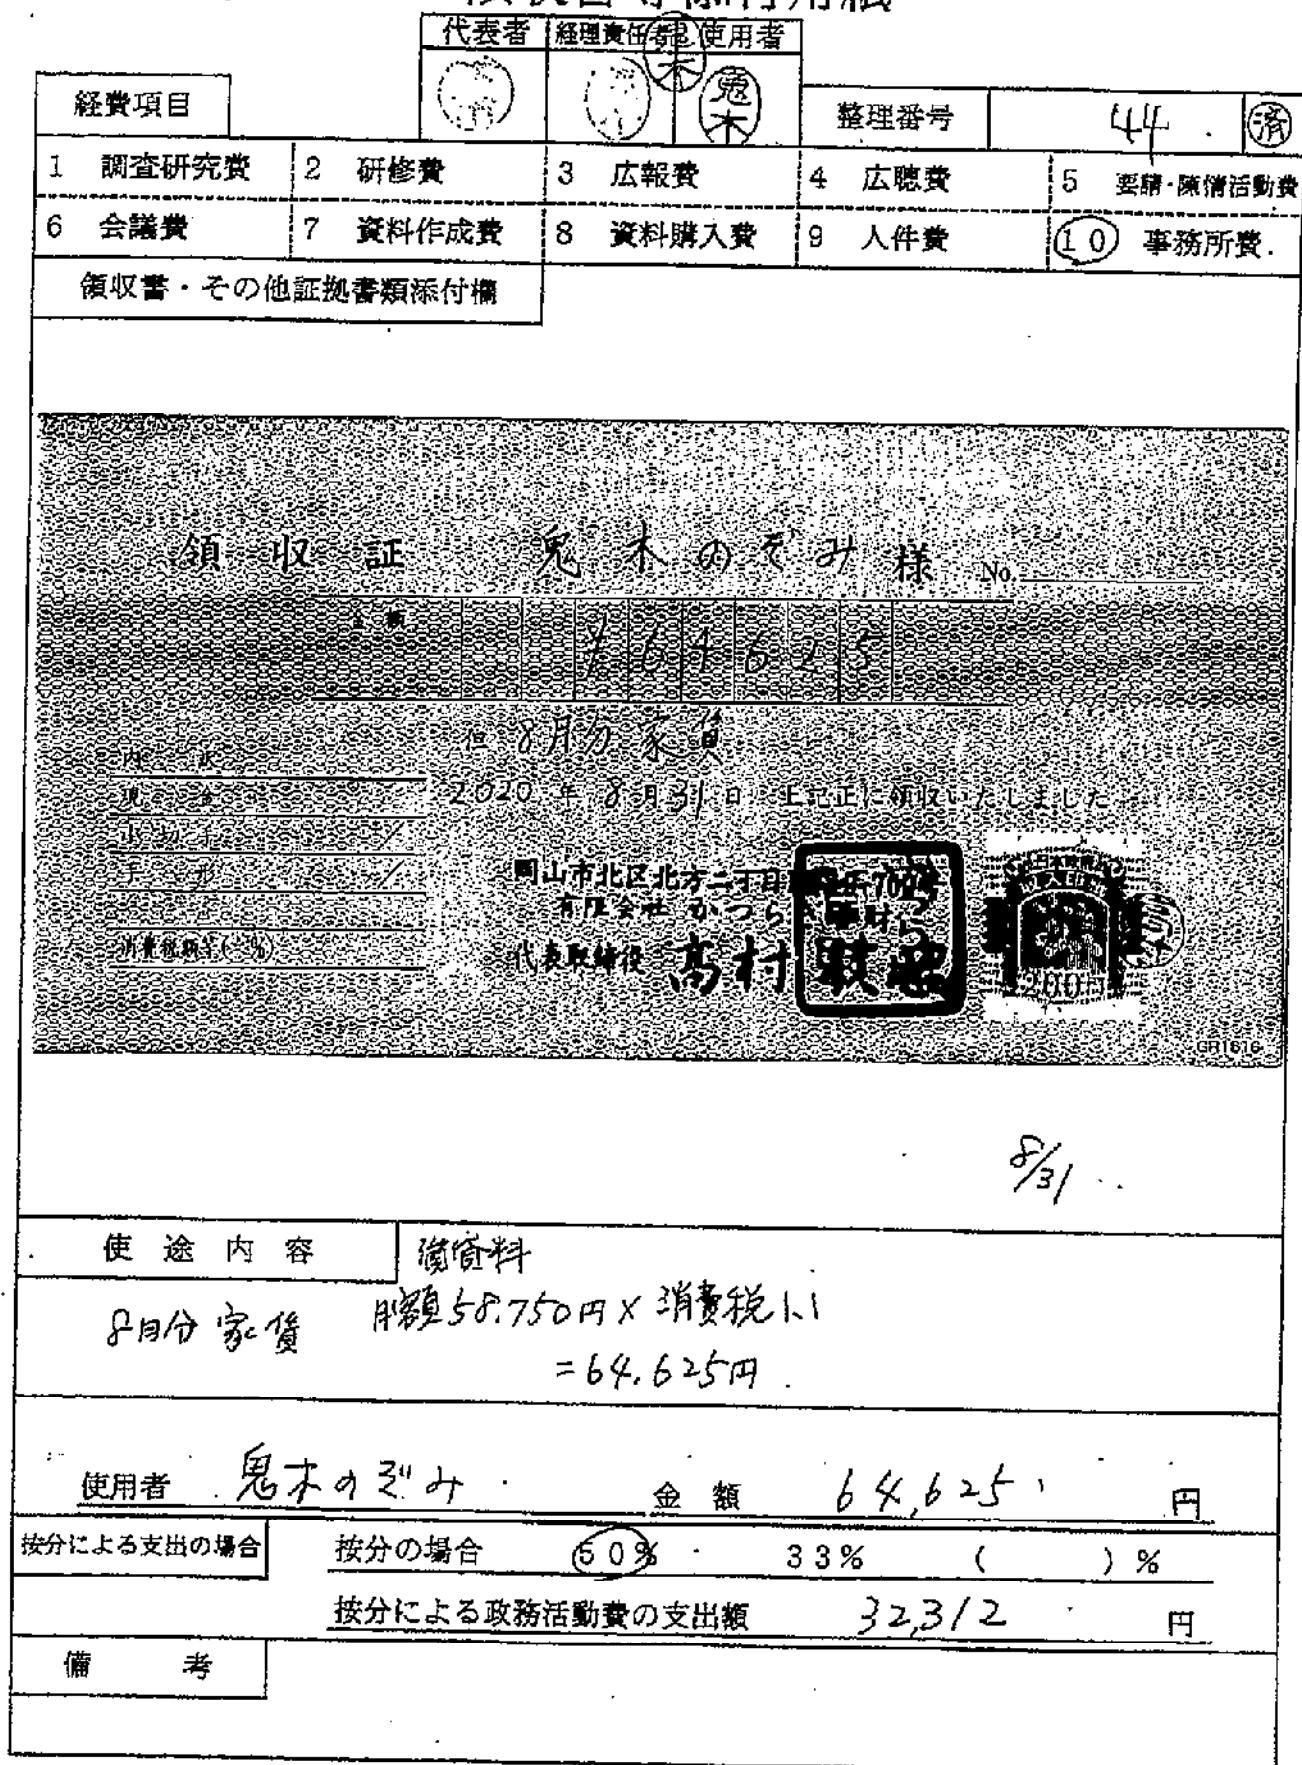 代表者 経理責任者 使用者
鬼木
経費項目 整理番号 44 済
1 調査研究費 2 研修費 3 広報費 4 広聴費 5 要請・陳情活動費
6 会議費 7 資料作成費 8 資料購入費 9 人件費 10 事務所費
領収書・その他証拠書類添付欄
領収証 鬼木のぞみ 様 No.
金額 ¥64625
但 8月分家賃
内訳
現金
2020年8月31日 上記正に領収いたしました
小切手
手形
岡山市北区北方二丁目
有限会社 かつら
消費税額等( %)
代表取締役 高村
200円
GR1616
8/31
使途内容
8月分家賃 月額58.750円×消費税1.1
=64.625円
使用者 鬼木のぞみ 金額 64,625 円
按分による支出の場合 按分の場合 50% 33% ( )%
按分による政務活動費の支出額 32,312 円
備考